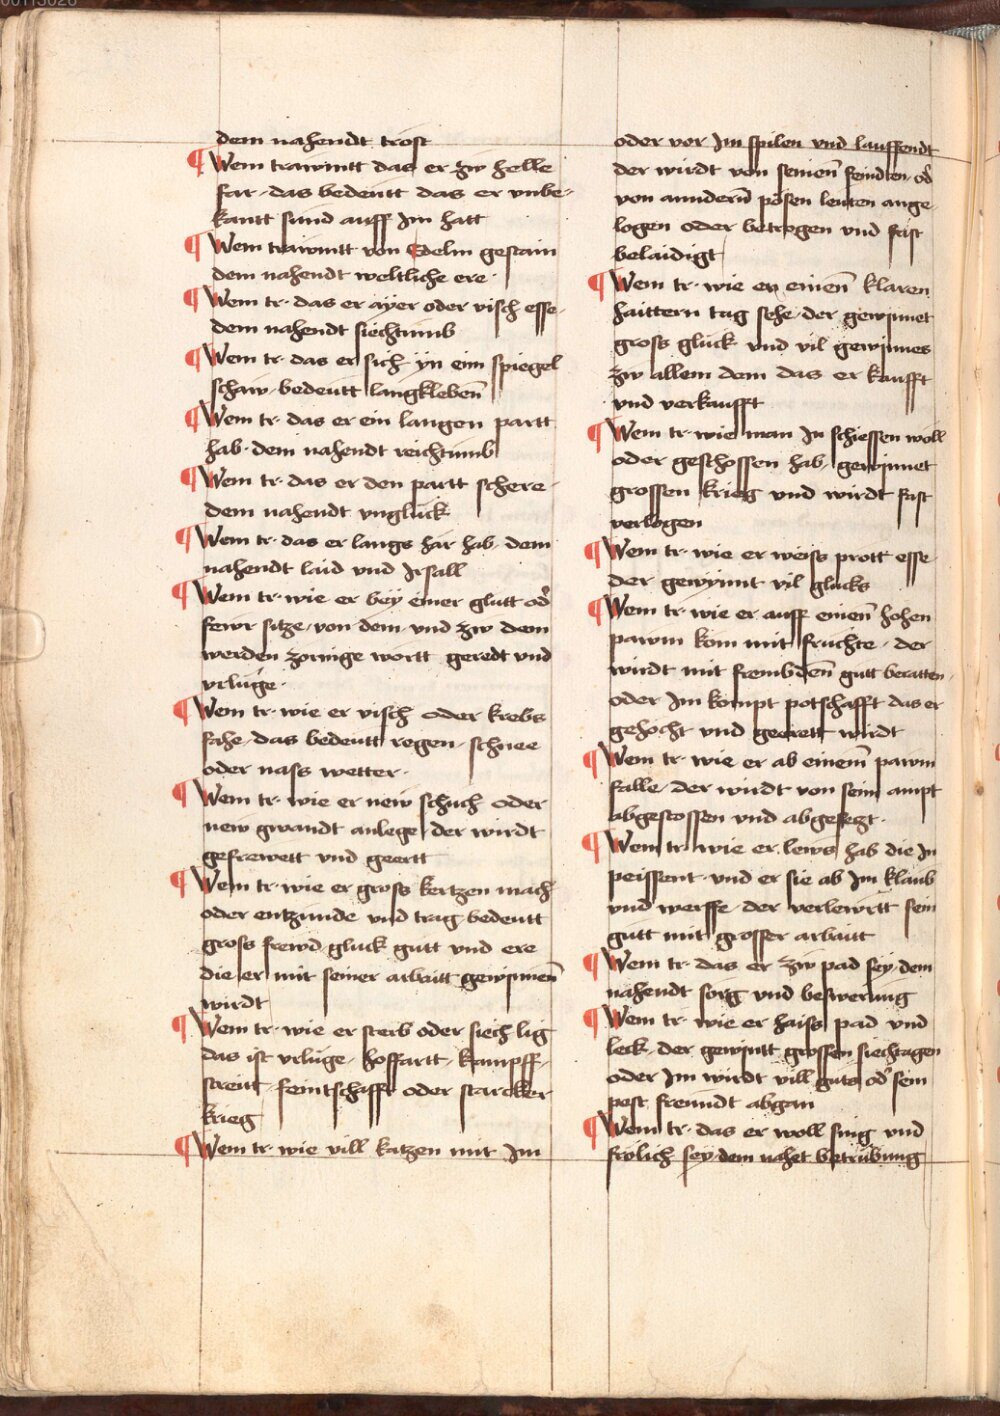 dem nahendt trost
¶ Wem trawmtt das er zw helle
far · das bedeutt das er vnbe-
kantt sund auff Im hatt
¶ Wem trawmtt von Edelm gestain
dem nahendt weltliche ere ·
¶ Wem tr · das er äyer oder visch esse ·
dem nahendt siechtumb
¶ Wem tr · das er sich yn eim spiegel
schaw · bedeutt langkleben̄
¶ Wem tr · das er ein langen partt
hab · dem nahendt reichtumb
¶ Wem tr · das er den partt schere ·
dem nahendt vngluck
¶ Wem tr · das er langs har hab · dem
nahendt laid vnd Irsall
¶ Wem tr · wie er bey einer glutt od̄
fewr sitze · von dem · vnd zw dem
werden zornige wortt geredt vnd
vrluge ·
¶ Wem tr · wie er visch oder krebs
fahe · das bedeutt regen · schnee
oder nass wetter ·
¶ Wem tr · wie er new schuch oder
new gwandt anlege · der wirdt
gefrewett vnd geertt
¶ Wem tr · wie er gross kertzen mach
oder entzunde vnd trag bedeutt
gross frewd gluck gutt vnd ere
die er mit seiner arbaitt gewinnen̄
wirdt
¶ Wem tr · wie er sterb oder siech lig
das ist vrluge · hoffartt · kampff ·
streitt · feintschafft oder starcker
krieg
¶ Wem tr · wie vill katzen mit Im
oder vor Im spilen vnd lauffendt
der wirdt von seinen̄ feindten · od̄
von anndern̄ pösen leuten ange-
logen oder betrogen vnd fast
belaidigt
¶ Wem tr · wie er einen̄ klaren
haittern tag sehe · der gewinnet
gross gluck vnd vil gewinnes
zw allem dem das er kaufft
vnd verkaufft
¶ Wem tr · wie man In schiessen woll
oder geschossen hab · gewinnet
grossen krieg vnd wirdt fast
verlogen
¶ Wem tr · wie er weiss prott esse ·
der gewynnt vil glucks
¶ Wem tr · wie er auff einen̄ hohen
pawm kom mit fruchte · der
wirdt mit frembden̄ gutt beratten ·
oder Im kompt potschafft das er
gehocht vnd geerett wirdt
¶ Wem tr · wie er ab einem̄ pawm
falle · der wirdt von seim ampt
abgestossen vnd abgesezt ·
¶ Wem tr · wie er lews hab die In
peissent · vnd er sie ab Im klaub
vnd werffe · der verlewrtt sein
gutt mit grosser arbaitt
¶ Wem tr · das er zw pad sey · dem
nahendt sorg vnd beswerung
¶ Wem tr · wie er haiss pad vnd
leck · der gewintt grossen siechtagen
oder Im wirdt vill guts od̄ sein
pest freundt abgan
¶ Wem tr · das er woll sing vnd
frolich sey · dem nahet betrubung